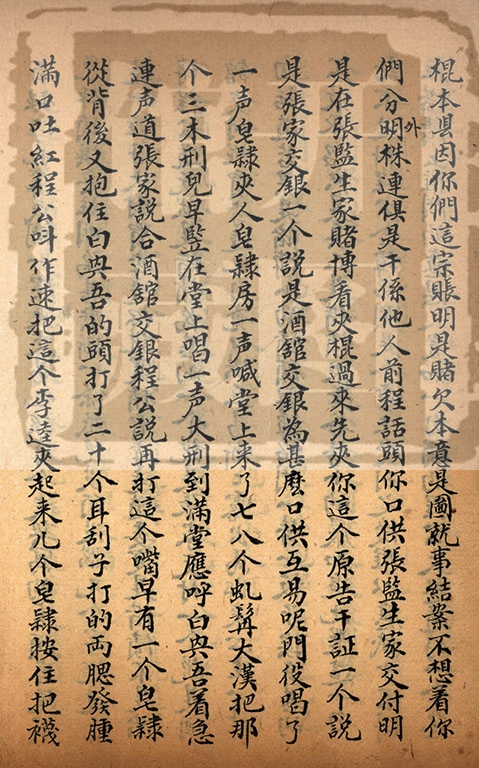 棍本县因你們這宗賬明是賭欠本意是圖就事結案不想着你
們分明外株連俱是干係他人前程話頭你口供張監生家交付明
是在張監生家賭博看夾棍過來先夾你這个原告干証一个說
是張家交銀一个說是酒舘交銀為甚麽口供互易呢門役喝了
一声皂隸夾人皂隸房一声喊堂上来了七八个虬髯大漢把那
个三木刑兒早監在堂上唱一声大刑到滿堂應呼白與吾着急
連声道張家説合酒舘交銀程公説再打這个嘴早有一个皂隸
從背後又抱住白與吾的頭打了二十个耳刮子打的両腮發腫
滿口吐紅程公呌作速把這个李逵夾起来几个皂隸按住把襪